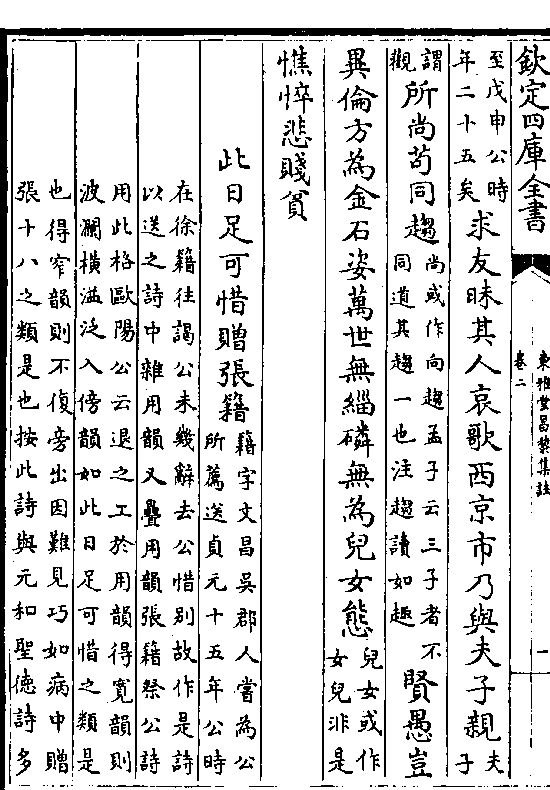 欽定四庫全書
東雅堂昌黎集註
卷二
一
至戊申公時
年二十五矣
求友昧其人哀歌西京市乃與夫子親
夫
子
謂
觀
所尚苟同趨
尚或作向趨孟子云三子者不
同道其趨一也注趨讀如趣
賢愚豈
異倫方為金石姿萬世無緇磷無為兒女態
兒女或作
女兒非是
憔悴悲賤貧
此日足可惜贈張籍
籍字文昌吳郡人當為公
所薦送貞元十五年公時
在徐籍往謁公未幾辭去公惜別故作是詩
以送之詩中雜用韻又疊用韻張籍祭公詩
用此格歐陽公云退之工於用韻得寬韻則
波瀾橫溢泛入傍韻如此日足可惜之類是
也得窄韻則不復旁出因難見巧如病中贈
張十八之類是也按此詩與元和聖德詩多